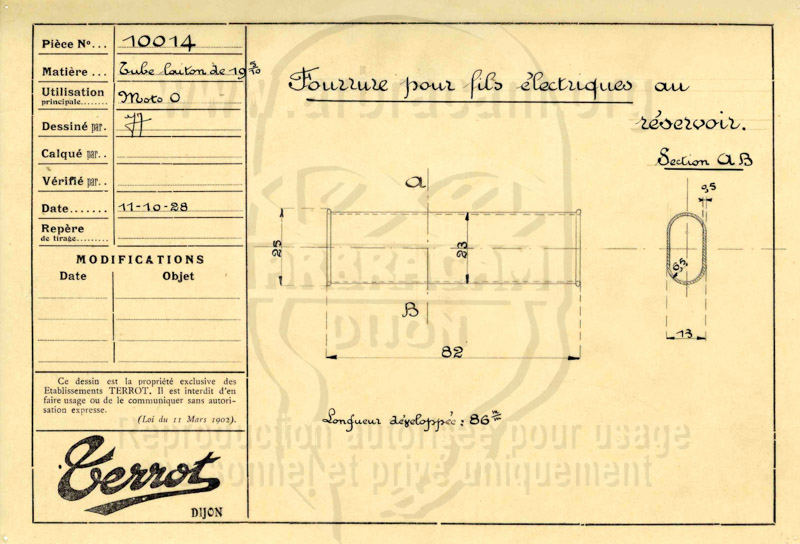 Pièce Nº... 10014
Matière ... Tube laiton de 19 5/10
Utilisation
principale........ Moto O
Dessiné par.
Calqué par..
Vérifié par..
Date....... 11-10-28
Repère
de tirage........
MODIFICATIONS
Date Objet
Ce dessin est la propriété exclusive des
Etablissements TERROT. Il est interdit d'en
faire usage ou de le communiquer sans autori-
sation expresse.
(Loi du 11 Mars 1902).
Terrot
DIJON
Fourrure pour fils électriques au
réservoir.
Section AB
A
B
25
23
82
0,5
6,5
13
Longueur développée : 86 m
www.arbracam.org
ARBRACAM
DIJON
Reproduction autorisée pour usage
personnel et privé uniquement